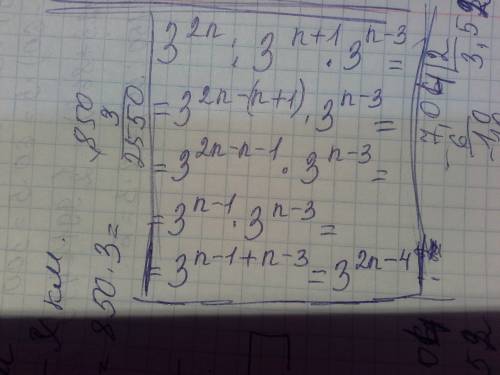 3^{2n} : 3^{n+1} · 3^{n-3} =
= 3^{2n-(n+1)} · 3^{n-3} =
= 3^{2n-n-1} · 3^{n-3} =
= 3^{n-1} · 3^{n-3} =
= 3^{n-1+n-3} = 3^{2n-4}
км.
= 850 · 3 =
850
3
2550
7,04 | 2
6
3,52
10